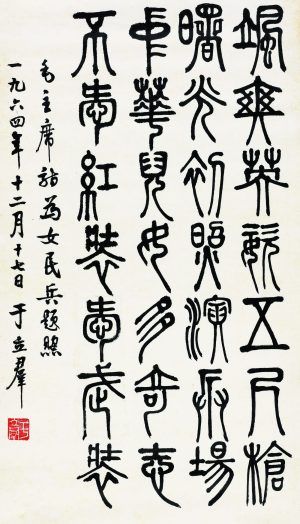 颯爽英姿五尺槍
曙光初照演兵場
中華兒女多奇志
不愛紅裝愛武裝
毛主席詩為女民兵題照
一九六四年十二月十七日 于立群